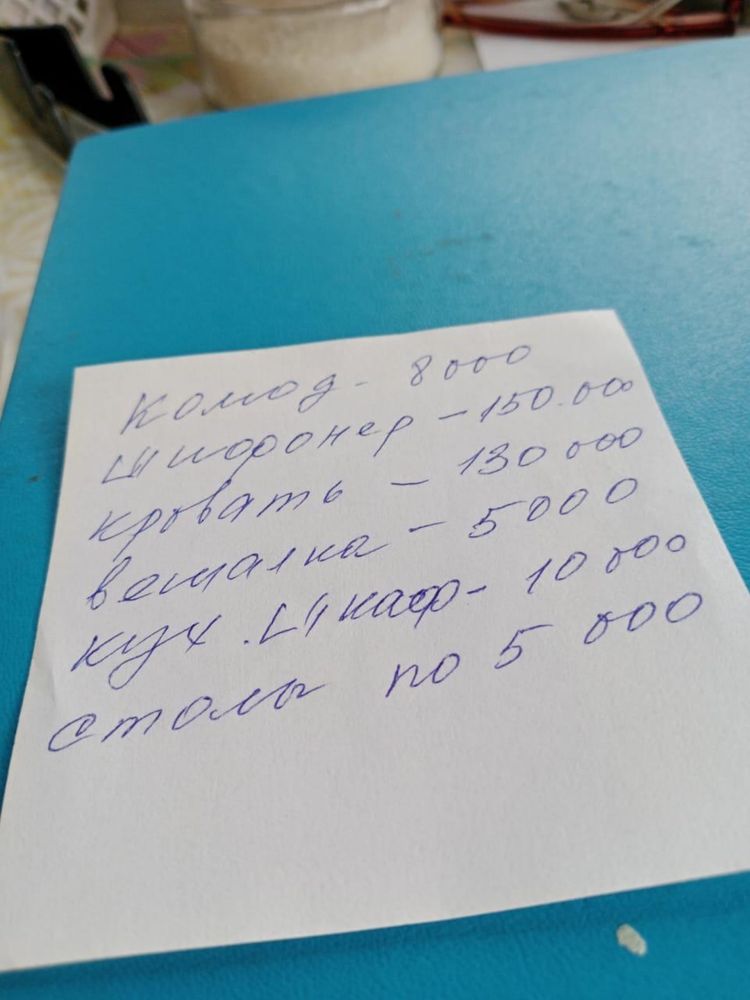 Комод - 8000
Шифонер - 150.000
кровать - 130 000
вешалка - 5000
кух. Шкаф - 10 000
столы по 5 000